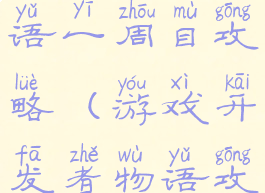 yǔ yī zhōu mù gōng
语一周目攻
lüè yóu xì kāi
略（游戏开
fā zhě wù yǔ gōng
发者物语攻